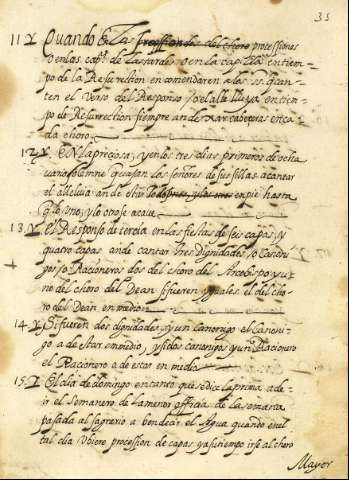 35
11 Y Quando En las processiones
o en las capas de las tardes o en la capilla en tiem-
po de la Resurrection encomendaren a los ss. q̄ can-
ten el Verso del Responso / o el alleluya en tiem-
po de Resurrection siempre an de Xar cabeças en ca-
da choro
12 Y. EN la preciosa, y en los tres dias primeros de octa
uario solemne q̄ uajan los señores de sus sillas a cantar
el alleluia an de estar en pie hasta
q̄ el Uno, y lo otro se acaue
13. Y El Responso de tercia en las fiestas de seis capas, y
quatro capas an de cantar tres Dignidades, / o Canoni
gos / o Racioneros dos del choro del Arcobispo y u
no del choro del Dean si fueren yguales. el del cho-
ro del Dean en medio
14. Y Si fueren dos dignidades, y un canonigo el Canoni-
go a de estar en medio, y si dos canonigos y un Racionero
el Racionero a de estar en medio
15. Y El dia de domingo en tanto que se dice la prima a de
ir el semanero de la menor officia de la semana
pasada al sagrario a bendecir el Agua quando en el
tal dia Ubiere procession de capas, y a su tiempo irse al choro
Mayor